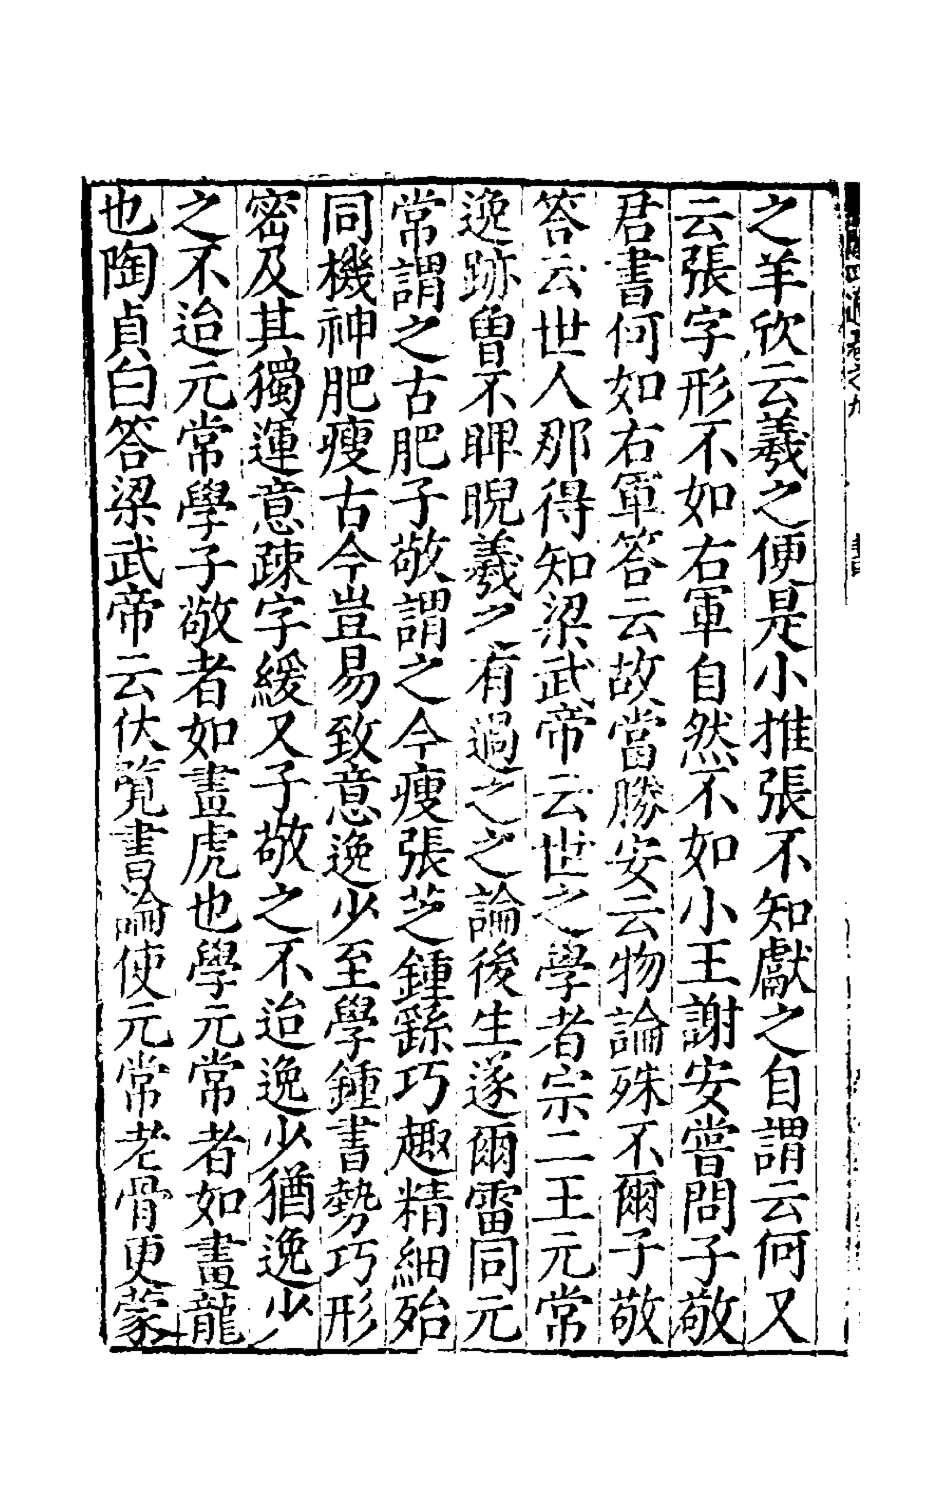 之羊欣云羲之便是小推張不知獻之自謂云何又
云張字形不如右軍自然不如小王謝安嘗問子敬
君書何如右軍答云故當勝安云物論殊不爾子敬
答云世人那得知梁武帝云世之學者宗二王元常
逸跡曽不睥睨羲之有過之之論後生遂爾雷同元
常謂之古肥子敬謂之今瘦張芝鍾繇巧趣精細殆
同機神肥瘦古今豈易致意逸少至學鍾書勢巧形
密及其獨運意疎字緩又子敬之不迨逸少猶逸少
之不迨元常學子敬者如畫虎也學元常者如畫龍
也陶貞白答梁武帝云伏覽書論使元常老骨更蒙